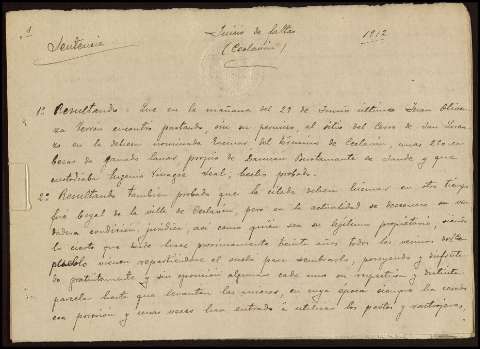 Juicio de faltas 1912
Sentencia (Ceclavín)
1º Resultando: Que en la mañana del 29 de Junio último Juan Oliven
za Terrón encontró pastando, sin su permiso, al sitio del Cerro de San Loren
zo en la dehesa nominada del término de Ceclavín, unas 250 ca
bezas de ganado lanar, propio de Damian Bustamante de Sande y que
custodiaba Eugenio Leal; hecho probado.
2º Resultando también probado que la citada dehesa en otro tiempo
fué Boyal de la villa de Ceclavín, pero en la actualidad se desconoce su ver
dadera condición jurídica, así como quién sea su legítimo propietario, siendo
lo cierto que desde hace proximamente veinte años todos los vecinos de este
pueblo vienen repartiéndose el suelo para sembrarlo, poseyendo y disfrután
do gratuitamente y sin oposición alguna cada uno su respectiva y distinta
parcela hasta que levantan las mieses, en cuya época siempre ha
con posesión y unas veces han entrado a utilizar los pastos y rastrojeras,